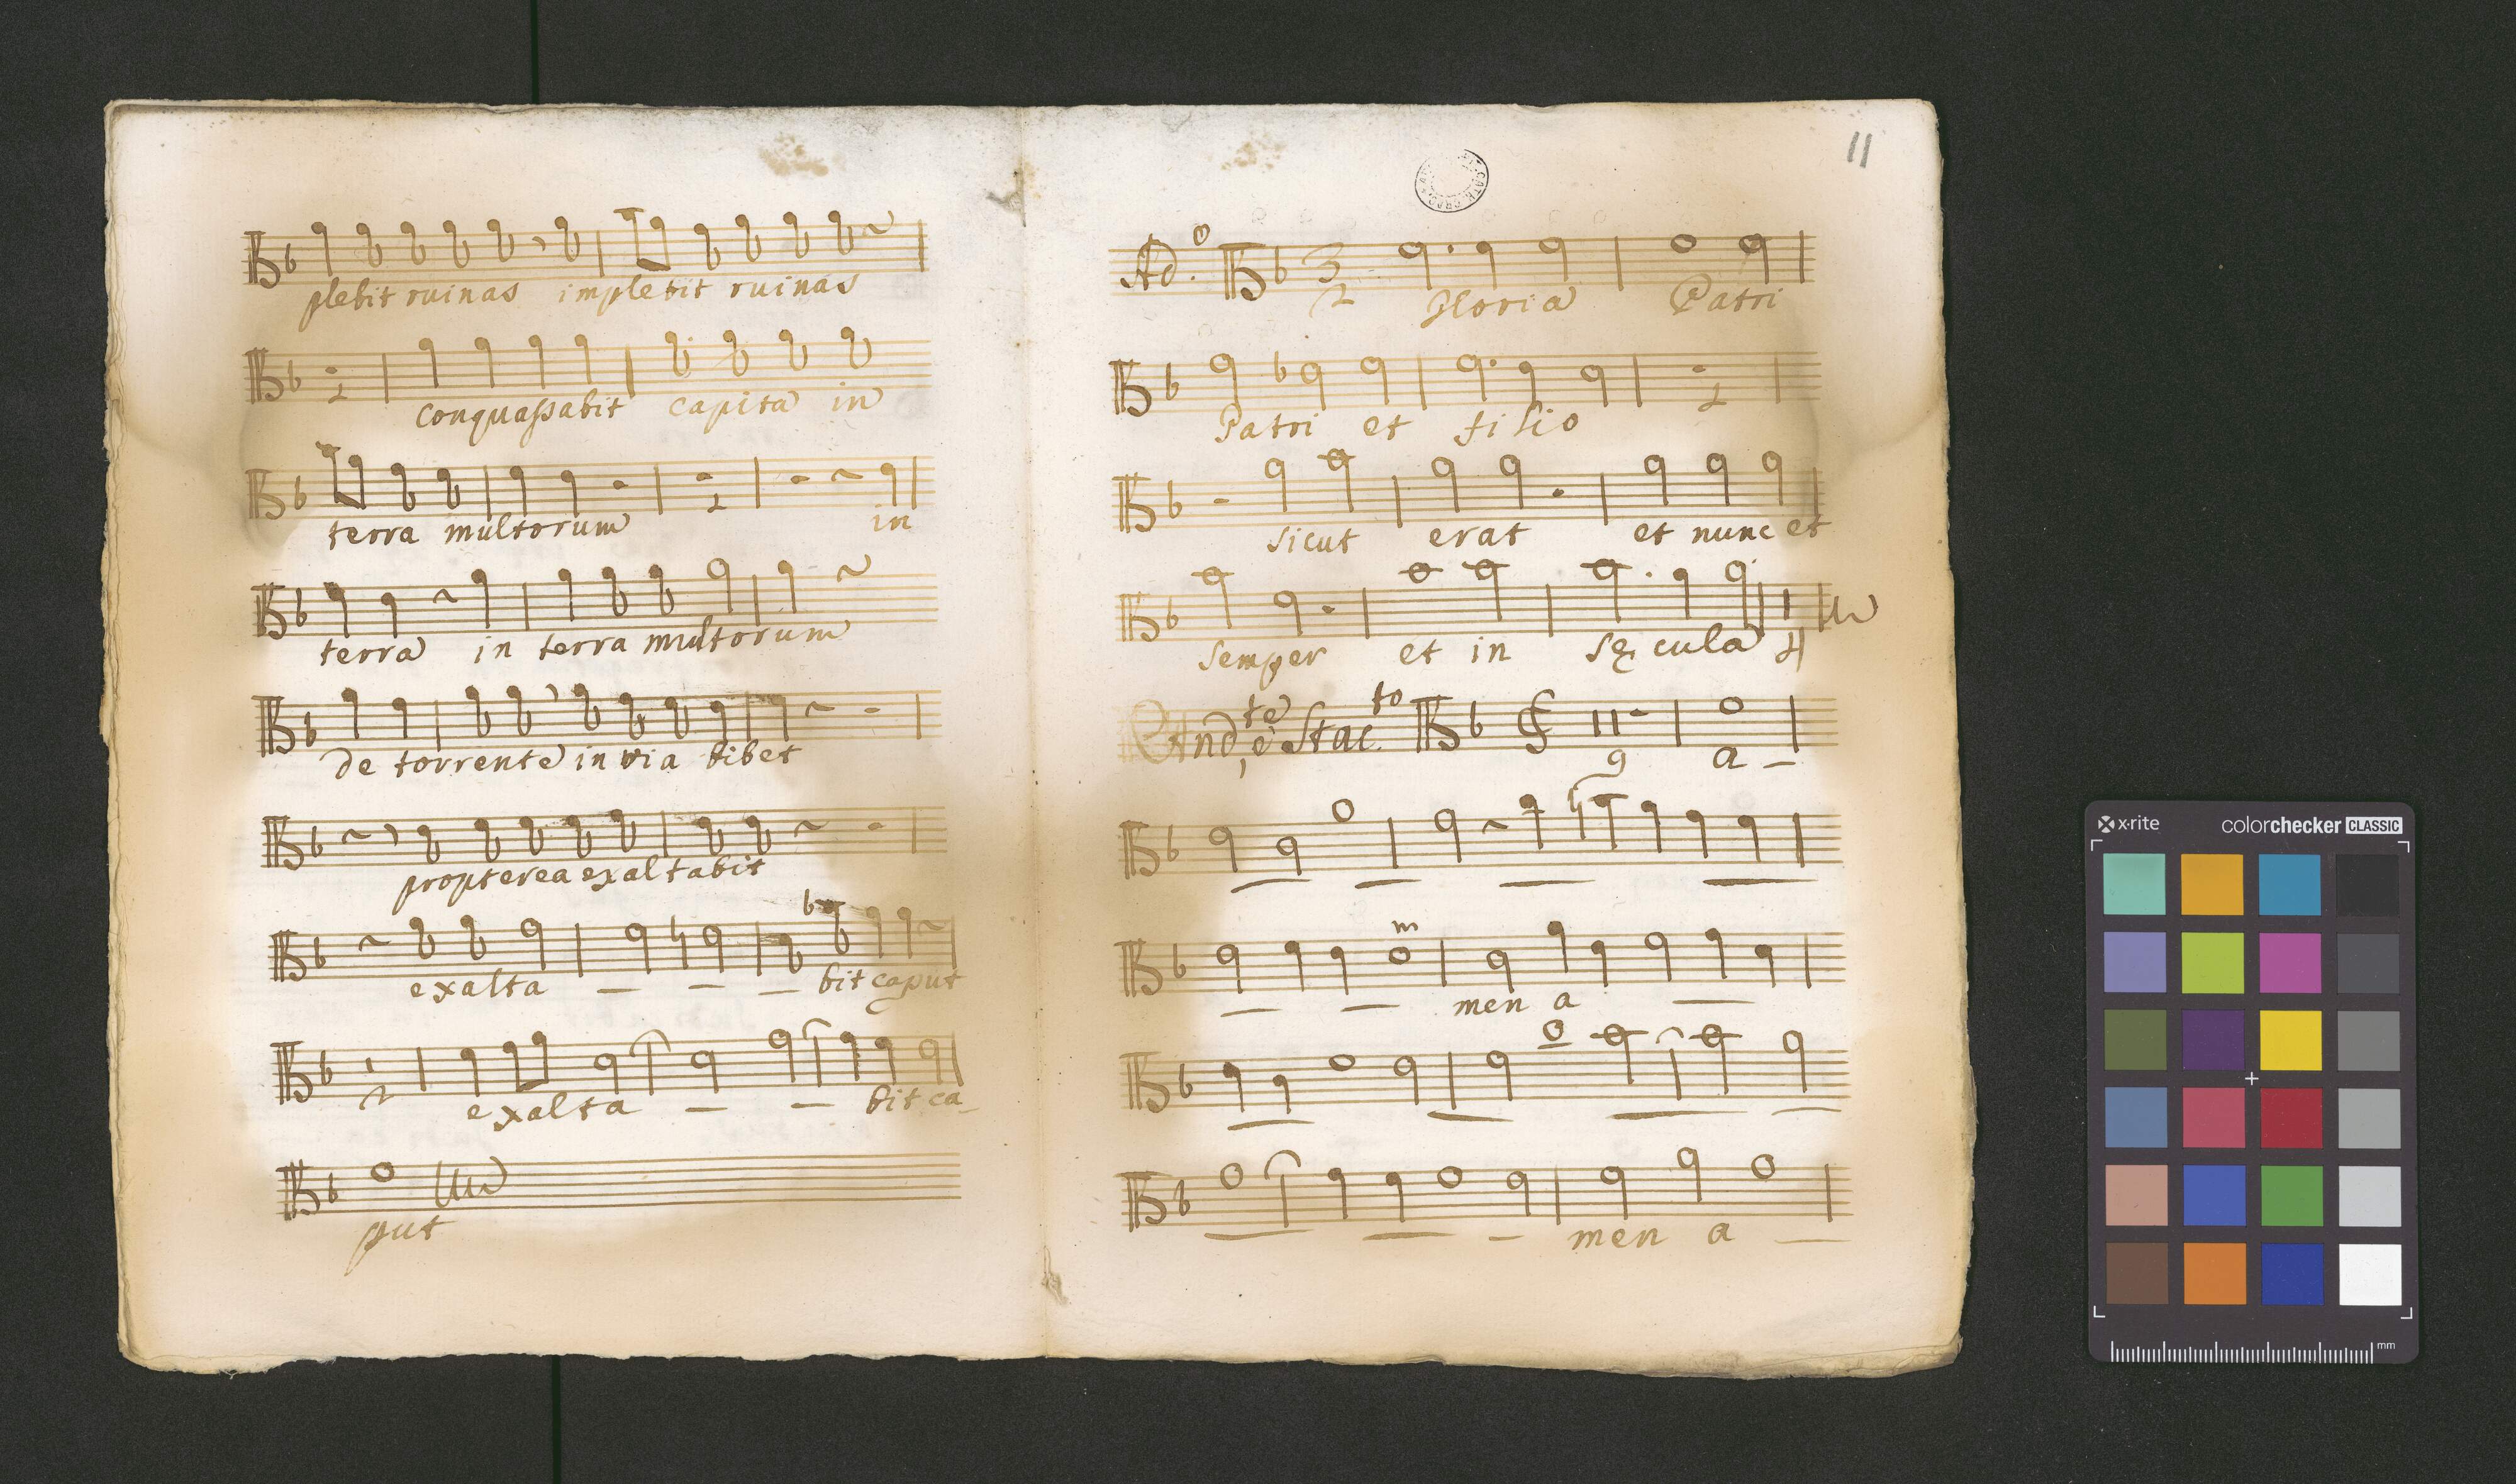 plebit ruinas impletit ruinas
2
conquaſsabit capita in
terra multorum in
2
terra in terra multorum
de torrente in via bibet
propterea exaltabit
exalta _ _ _ bit caput
2
exalta _ _ bit ca_
put
11
Ad.o 3 2 Gloria Patri
Patri et filio
2
sicut erat et nunc et
semper et in sęcula 4
And,te è Stac.to 9 a _
_ _ _ _
_ _ men a _
_ _ _ _
_ _ _ men a _
x·rite colorchecker CLASSIC
mm